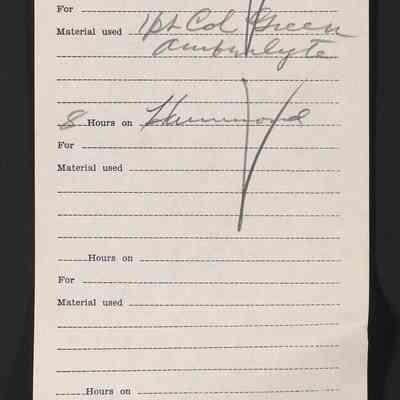 For
Material used 1pt Col Green
Amberlyte
8 Hours on Hammond
For
Material used
Hours on
For
Material used
Hours on